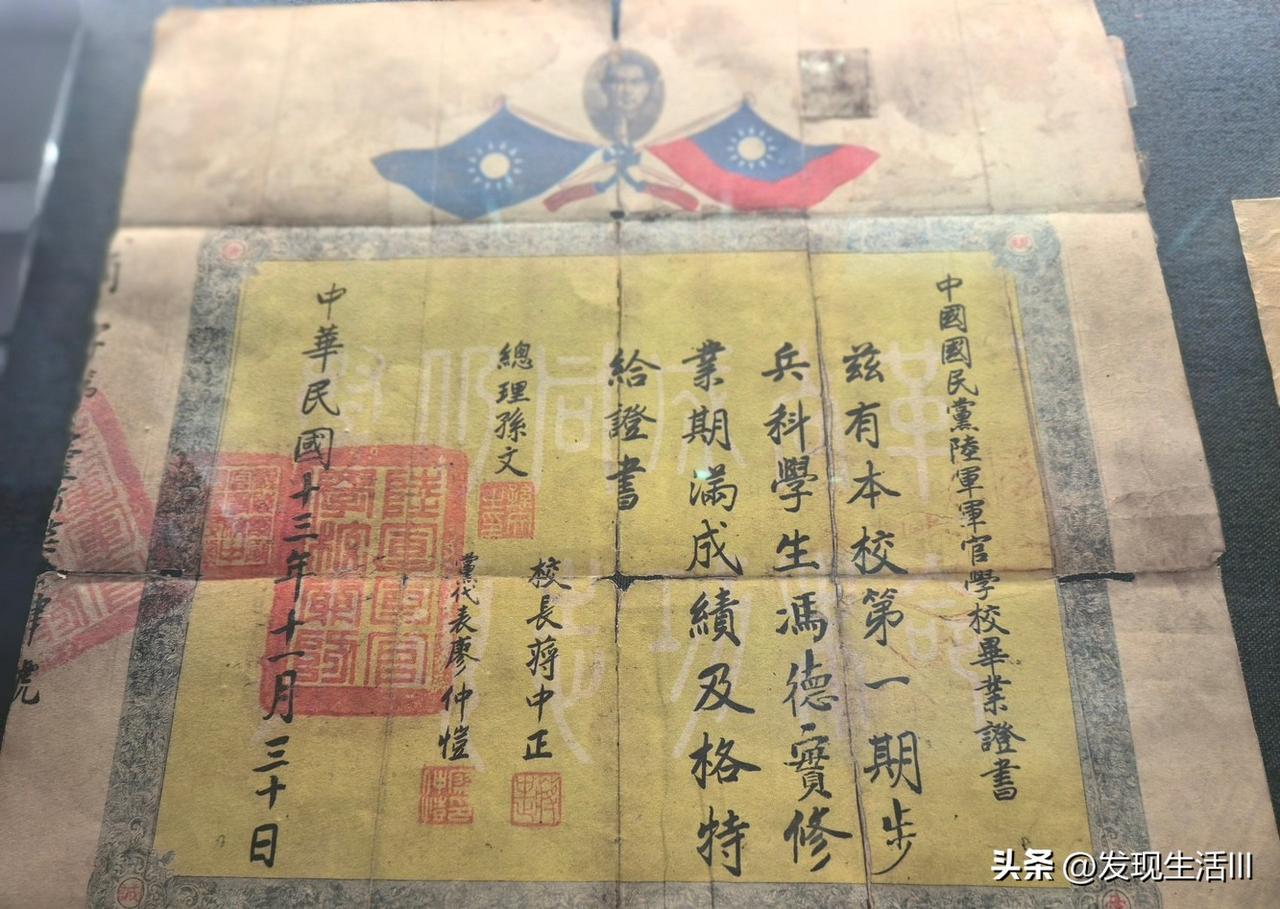 中國國民黨陸軍軍官學校畢業證書
茲有本校第一期步
兵科學生馮德實修
業期滿成績及格特
給證書
總理孫文
校長蔣中正
黨代表廖仲愷
中華民國十三年十一月三十日
陸軍軍官
學校關防
头条 @发现生活III